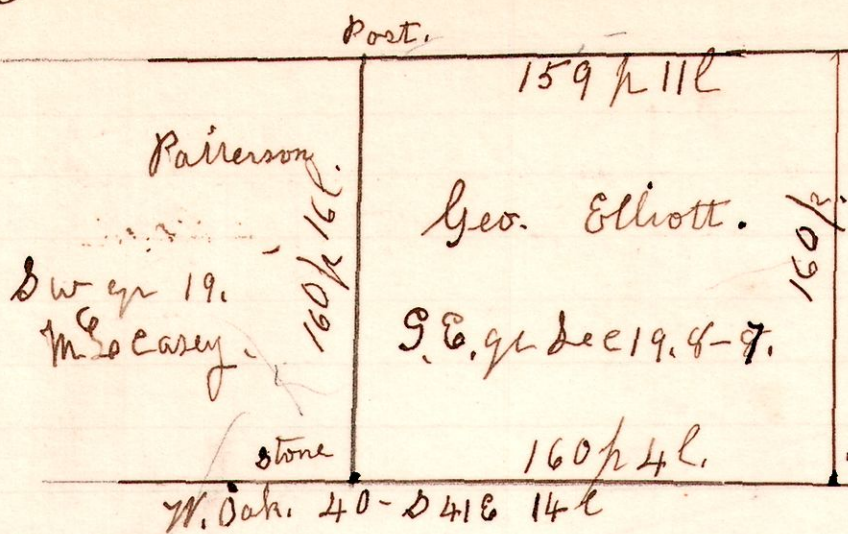 Post.
159 p 11 l
Patterson
160 p 16 l.
Geo. Elliott.
160 p.
S w qr 19.
S. E. qr Sec 19. 8-7.
Casey.
Stone
160 p 4 l.
W. Oak. 40 - S 41 E 14 l